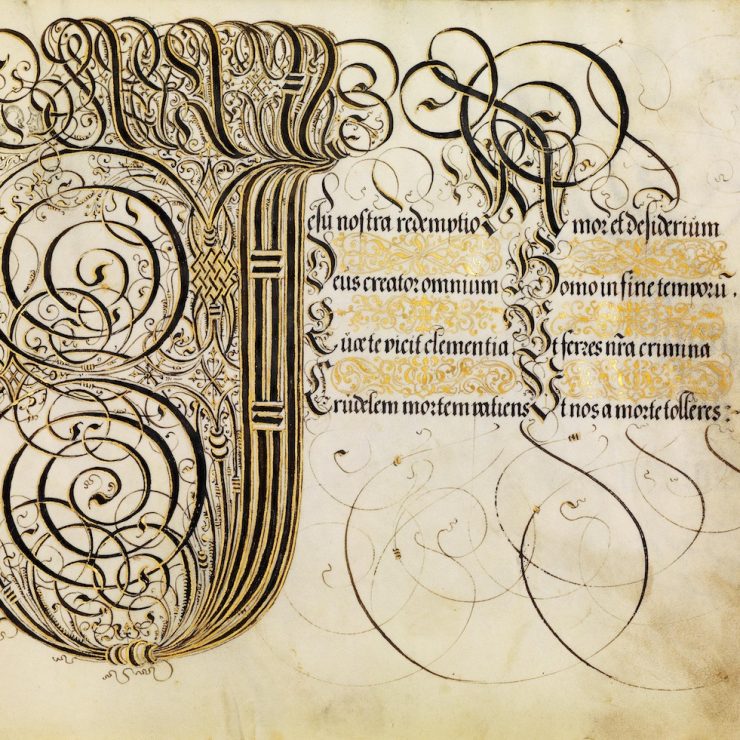 Jesu nostra redemptio Amor et desiderium
Deus creator omnium Homo in fine temporū.
Quæ te vicit clementia Ut ferres nr̃a crimina
Crudelem mortem patiens Ut nos a morte tolleres: